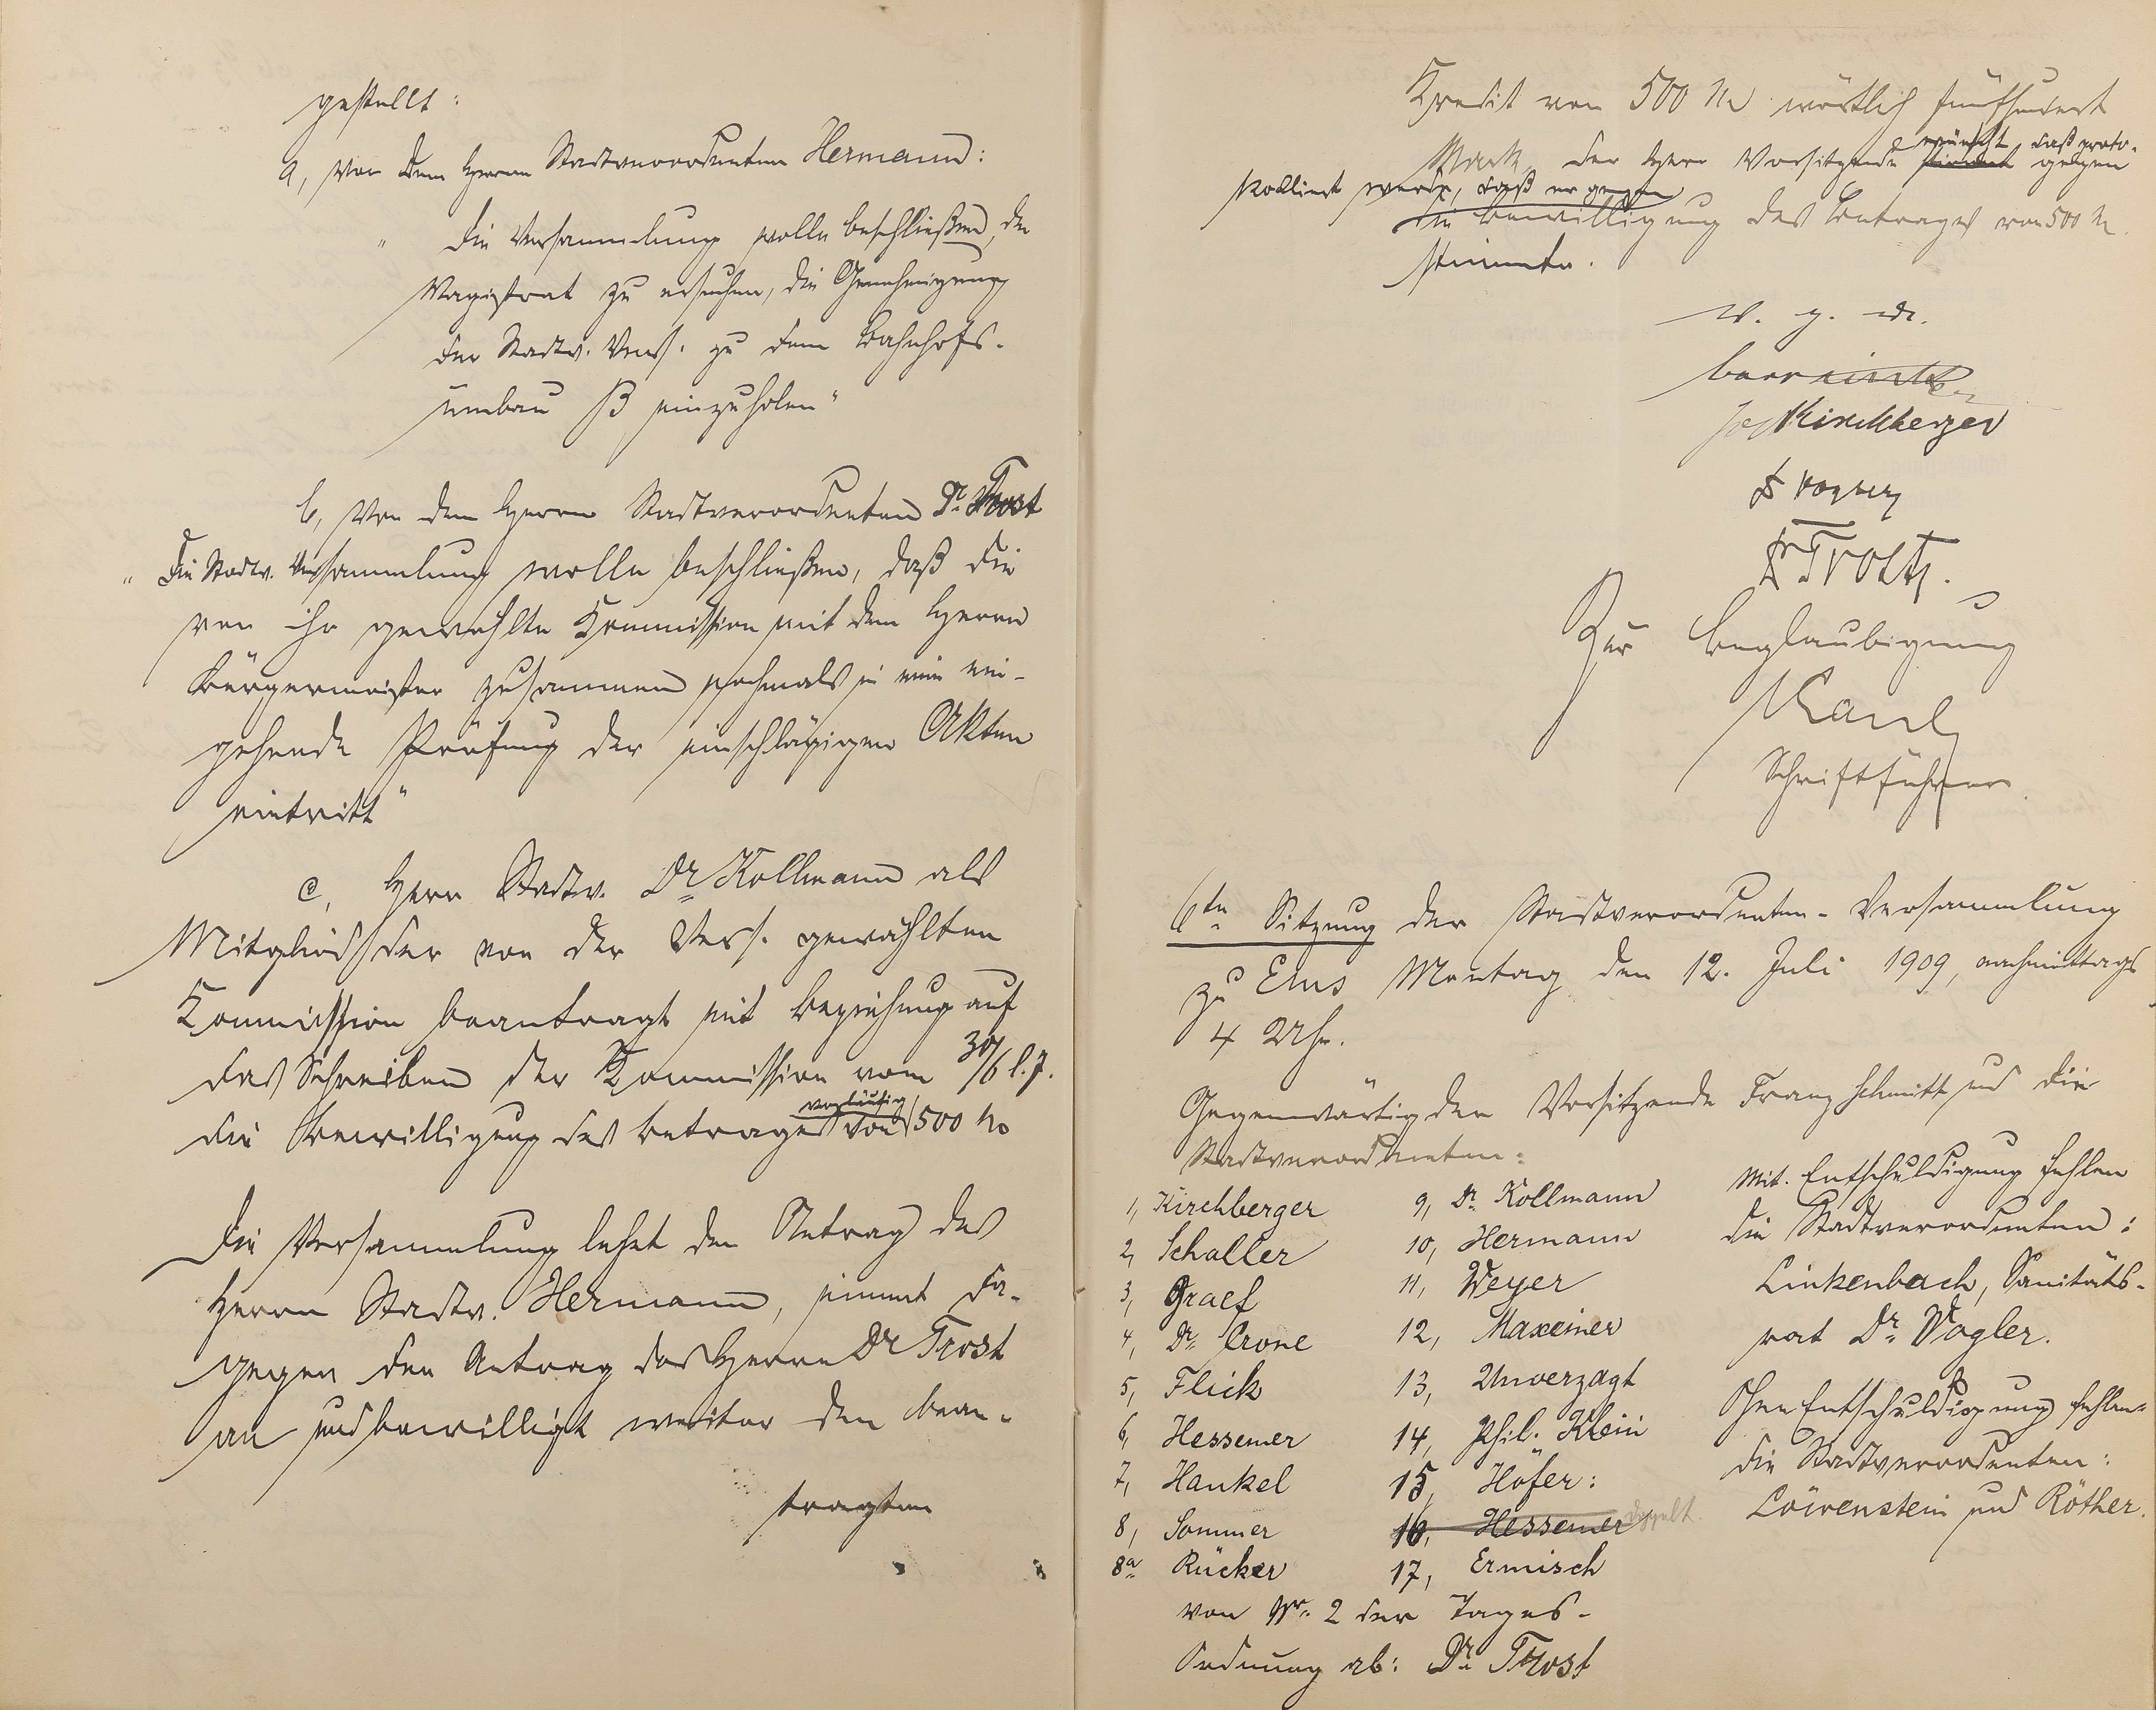 gestellt:
a, von dem Herrn Stadtverordneten Hermann:
" Die Versammlung wolle beschließen, den
Magistrat zu ersuchen, die Genehmigung
der Stadtv. Vers. zu dem Bahnhofs-
umbau einzuholen"
b, von dem Herrn Stadtverordneten Dr. Trost
" Die Stadtv. Versammlung wolle beschließen, daß die
von ihr gewählte Kommission mit dem Herrn
Bürgermeister zusammen nochmals in eine ein-
gehende Prüfung der einschlägigen Akten
eintritt"
c, Herr Stadtv. Dr Kollmann als
Mitglied der von der Vers. gewählten
Kommission beantragt mit Beziehung auf
das Schreiben der Kommission vom 30/6 l. J.
vorläufig
die Bewilligung des Betrages von 500 M
Die Versammlung lehnt den Antrag des
Herrn Stadtv. Hermann, nimmt da-
gegen den Antrag des Herrn Dr Trost
an und bewilligt weiter den bean-
tragten
Kredit von 500 M wörtlich fünfhundert
wünscht daß proto-
Mark. Der Herr Vorsitzende stimmt gegen
kolliert werde, daß er gegen
die Bewilligung des Betrages von 500 M
stimmte.
v. g. u.
Kirchberger
Dr Trost.
Zur Beglaubigung
Kaul
Schriftführer.
6te Sitzung der Stadtverordneten-Versammlung
zu Ems Montag den 12. Juli 1909, nachmittags
4 Uhr.
Gegenwärtig der Vorsitzende Franz Schmitt und die
Stadtverordneten:
1, Kirchberger
2, Schaller
3, Graef
4, Dr. Crone
5, Flick
6, Hessemer
7, Hankel
8, Sommer
8a Rücker
9, Dr. Kollmann
10, Hermann
11, Weyer
12, Maxeiner
13, Unverzagt
14, Phil. Klein
15, Höfer:
16, Hessemer doppelt.
17, Ermisch
von Nr. 2 der Tages-
Ordnung ab: Dr. Trost
Mit Entschuldigung fehlen
die Stadtverordneten:
Linkenbach, Sanitäts-
rat Dr. Vogler.
Ohne Entschuldigung fehlen
die Stadtverordneten:
Löwenstein und Röther.